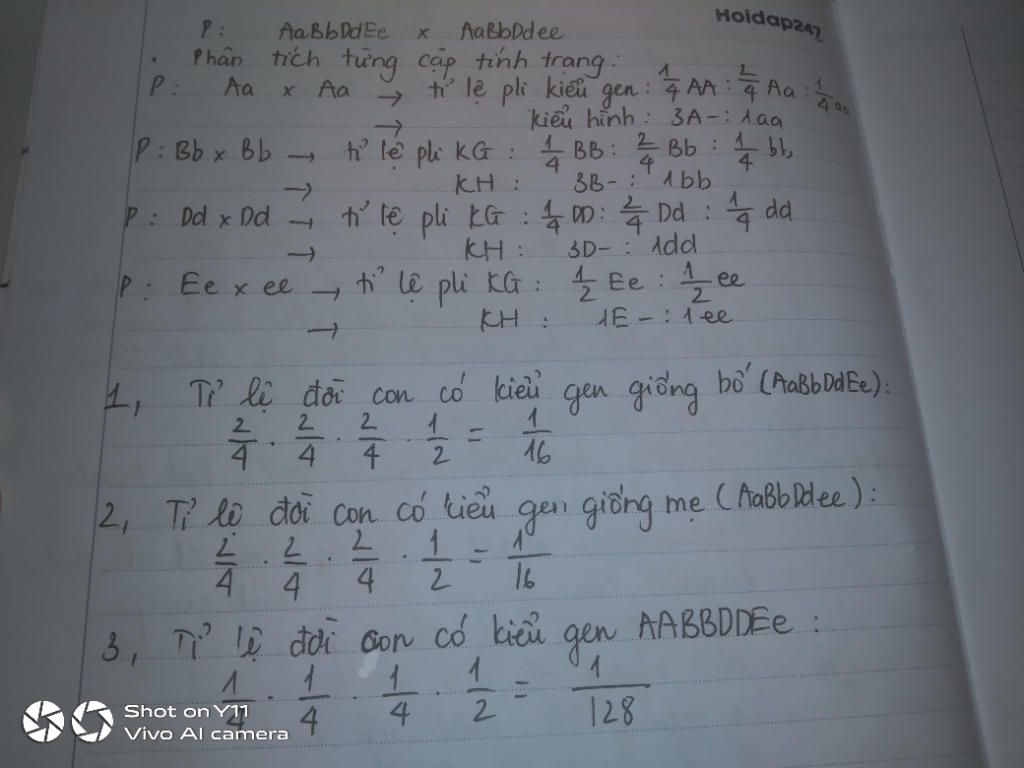 Hoidap247
P: AaBbDdEe x AaBbDdee
. Phân tích từng cặp tính trạng:
P: Aa x Aa → tỉ lệ pli kiểu gen: 1/4 AA : 2/4 Aa : 1/4 aa
→ kiểu hình : 3A-: 1aa
P: Bb x Bb → tỉ lệ pli KG : 1/4 BB: 2/4 Bb : 1/4 bb
→ KH : 3B- : 1bb
P: Dd x Dd → tỉ lệ pli KG : 1/4 DD: 2/4 Dd : 1/4 dd
→ KH : 3D- : 1dd
P: Ee x ee → tỉ lệ pli KG : 1/2 Ee : 1/2 ee
→ KH : 1E- : 1ee
1, Tỉ lệ đời con có kiểu gen giống bố (AaBbDdEe):
2/4 . 2/4 . 2/4 . 1/2 = 1/16
2, Tỉ lệ đời con có kiểu gen giống mẹ (AaBbDdee):
2/4 . 2/4 . 2/4 . 1/2 = 1/16
3, Tỉ lệ đời con có kiểu gen AABBDDEe :
1/4 . 1/4 . 1/4 . 1/2 = 1/128
Shot on Y11
Vivo AI camera